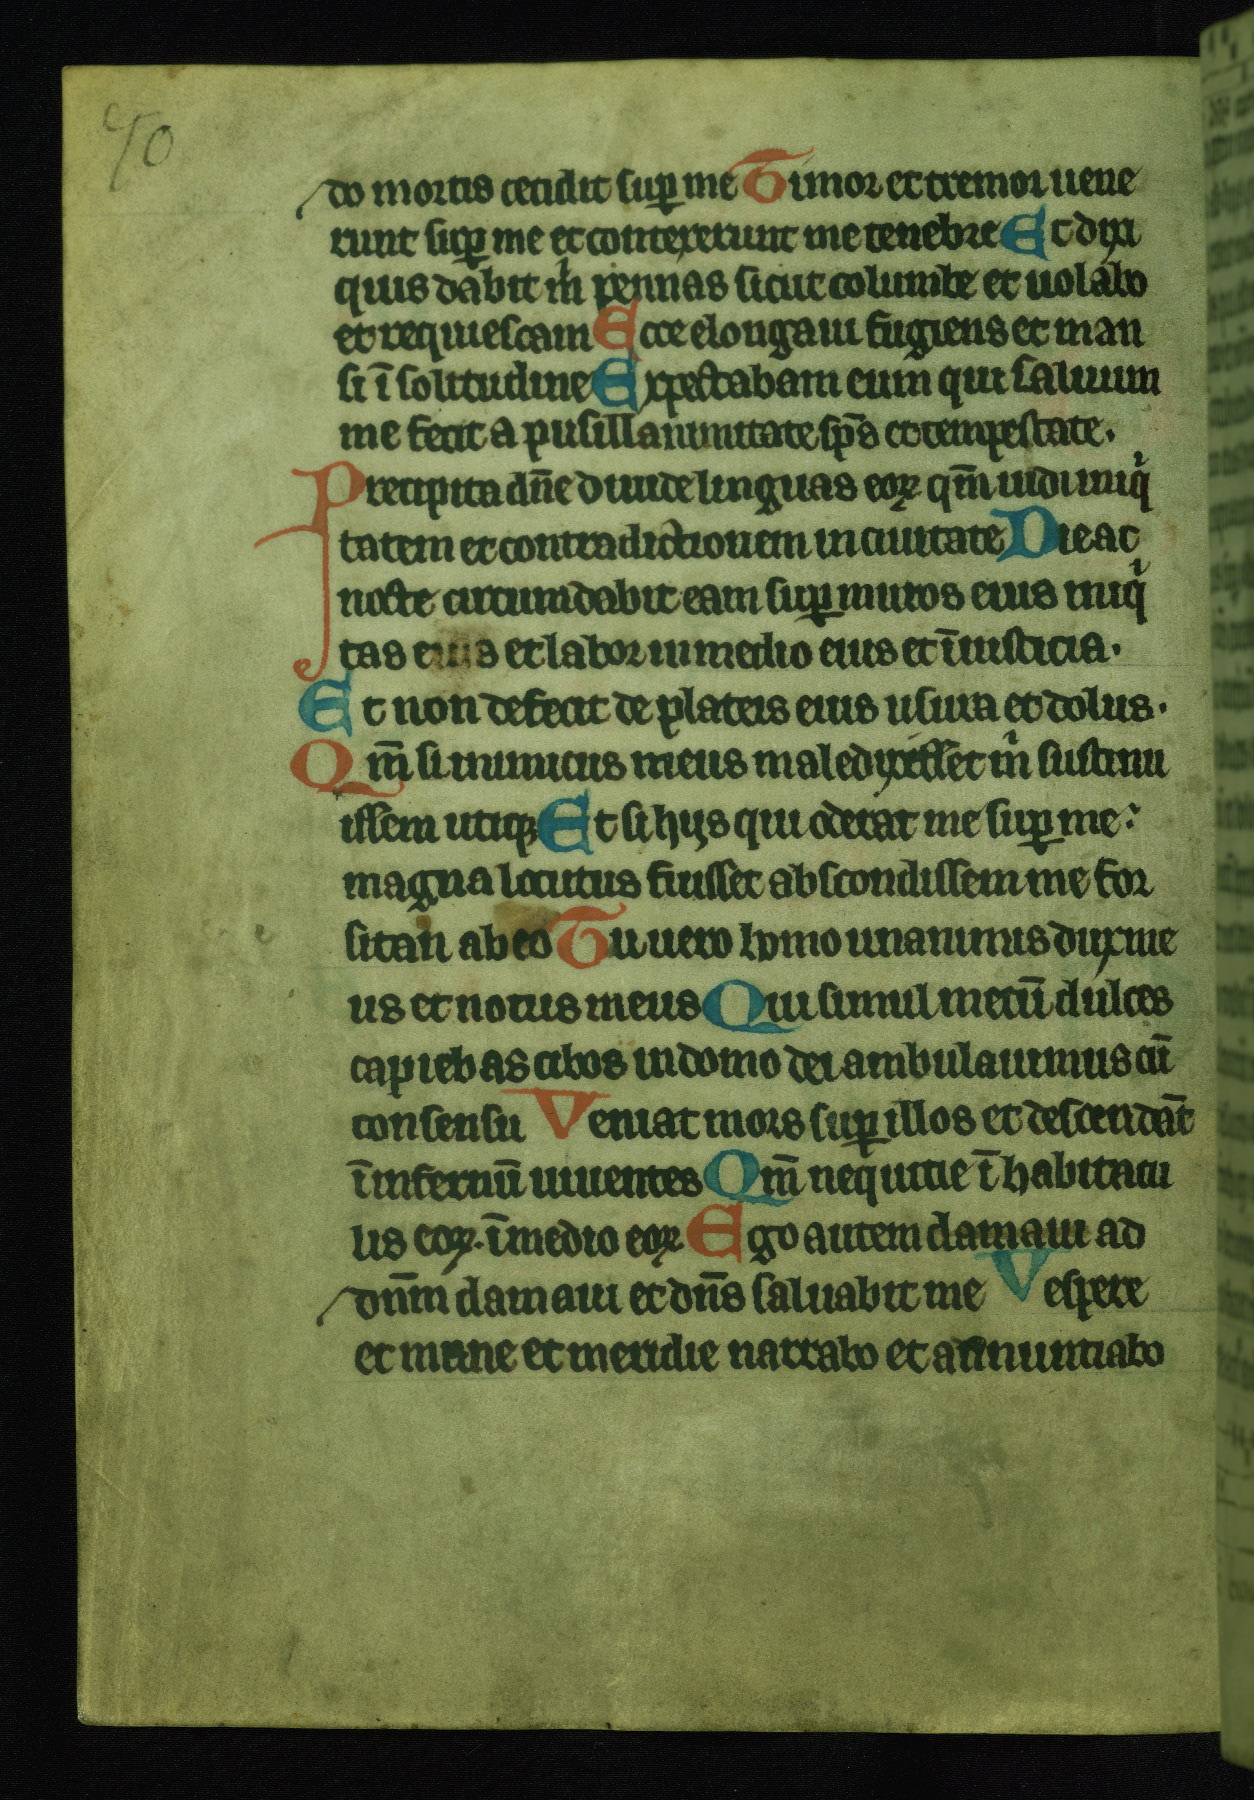 40
do mortis cecidit sup me Timor et tremor uene
runt sup me et contexerunt me tenebre Et dixi
quis dabit m̄ pennas sicut columbe et uolabo
et requiescam Ecce elongaui fugiens et man
si ī solitudine Expectabam eum qui saluum
me fecit a pusillanimitate sp̄s et tempestate.
Precipita dn̄e diuide linguas eoꝝ qm̄ uidi iniqͥ
tatem et contradictionem in ciuitate Die ac
nocte circumdabit eam sup muros eius iniqͥ
tas eius et labor in medio eius et īiusticia.
Et non defecit de plateis eius usura et dolus.
Qm̄ si inimicus meus maledixisset mͥ sustinu
issem utiqꝫ Et si hys qui oderat me sup me:
magna locutus fuisset abscondissem me for
sitan ab eo Tu uero homo unanimis dux me
us et notus meus Qui simul mecū dulces
capiebas cibos in domo dei ambulauimus cū
consensu Veniat mors sup illos et descendāt
ī infernū uiuentes Qm̄ nequitie ī habitacu
lis eoꝝ. ī medio eoꝝ Ego autem clamaui ad
dn̄m clamaui et dn̄s saluabit me Vespere
et mane et meridie narrabo et annuntiabo